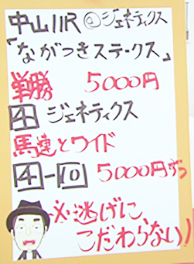 中山11R④ジェネティクス
「ながつきステークス」
単勝 5000円
④ジェネティクス
馬連とワイド
④-⑩ 5000円ずつ
※逃げに、
こだわらない!!